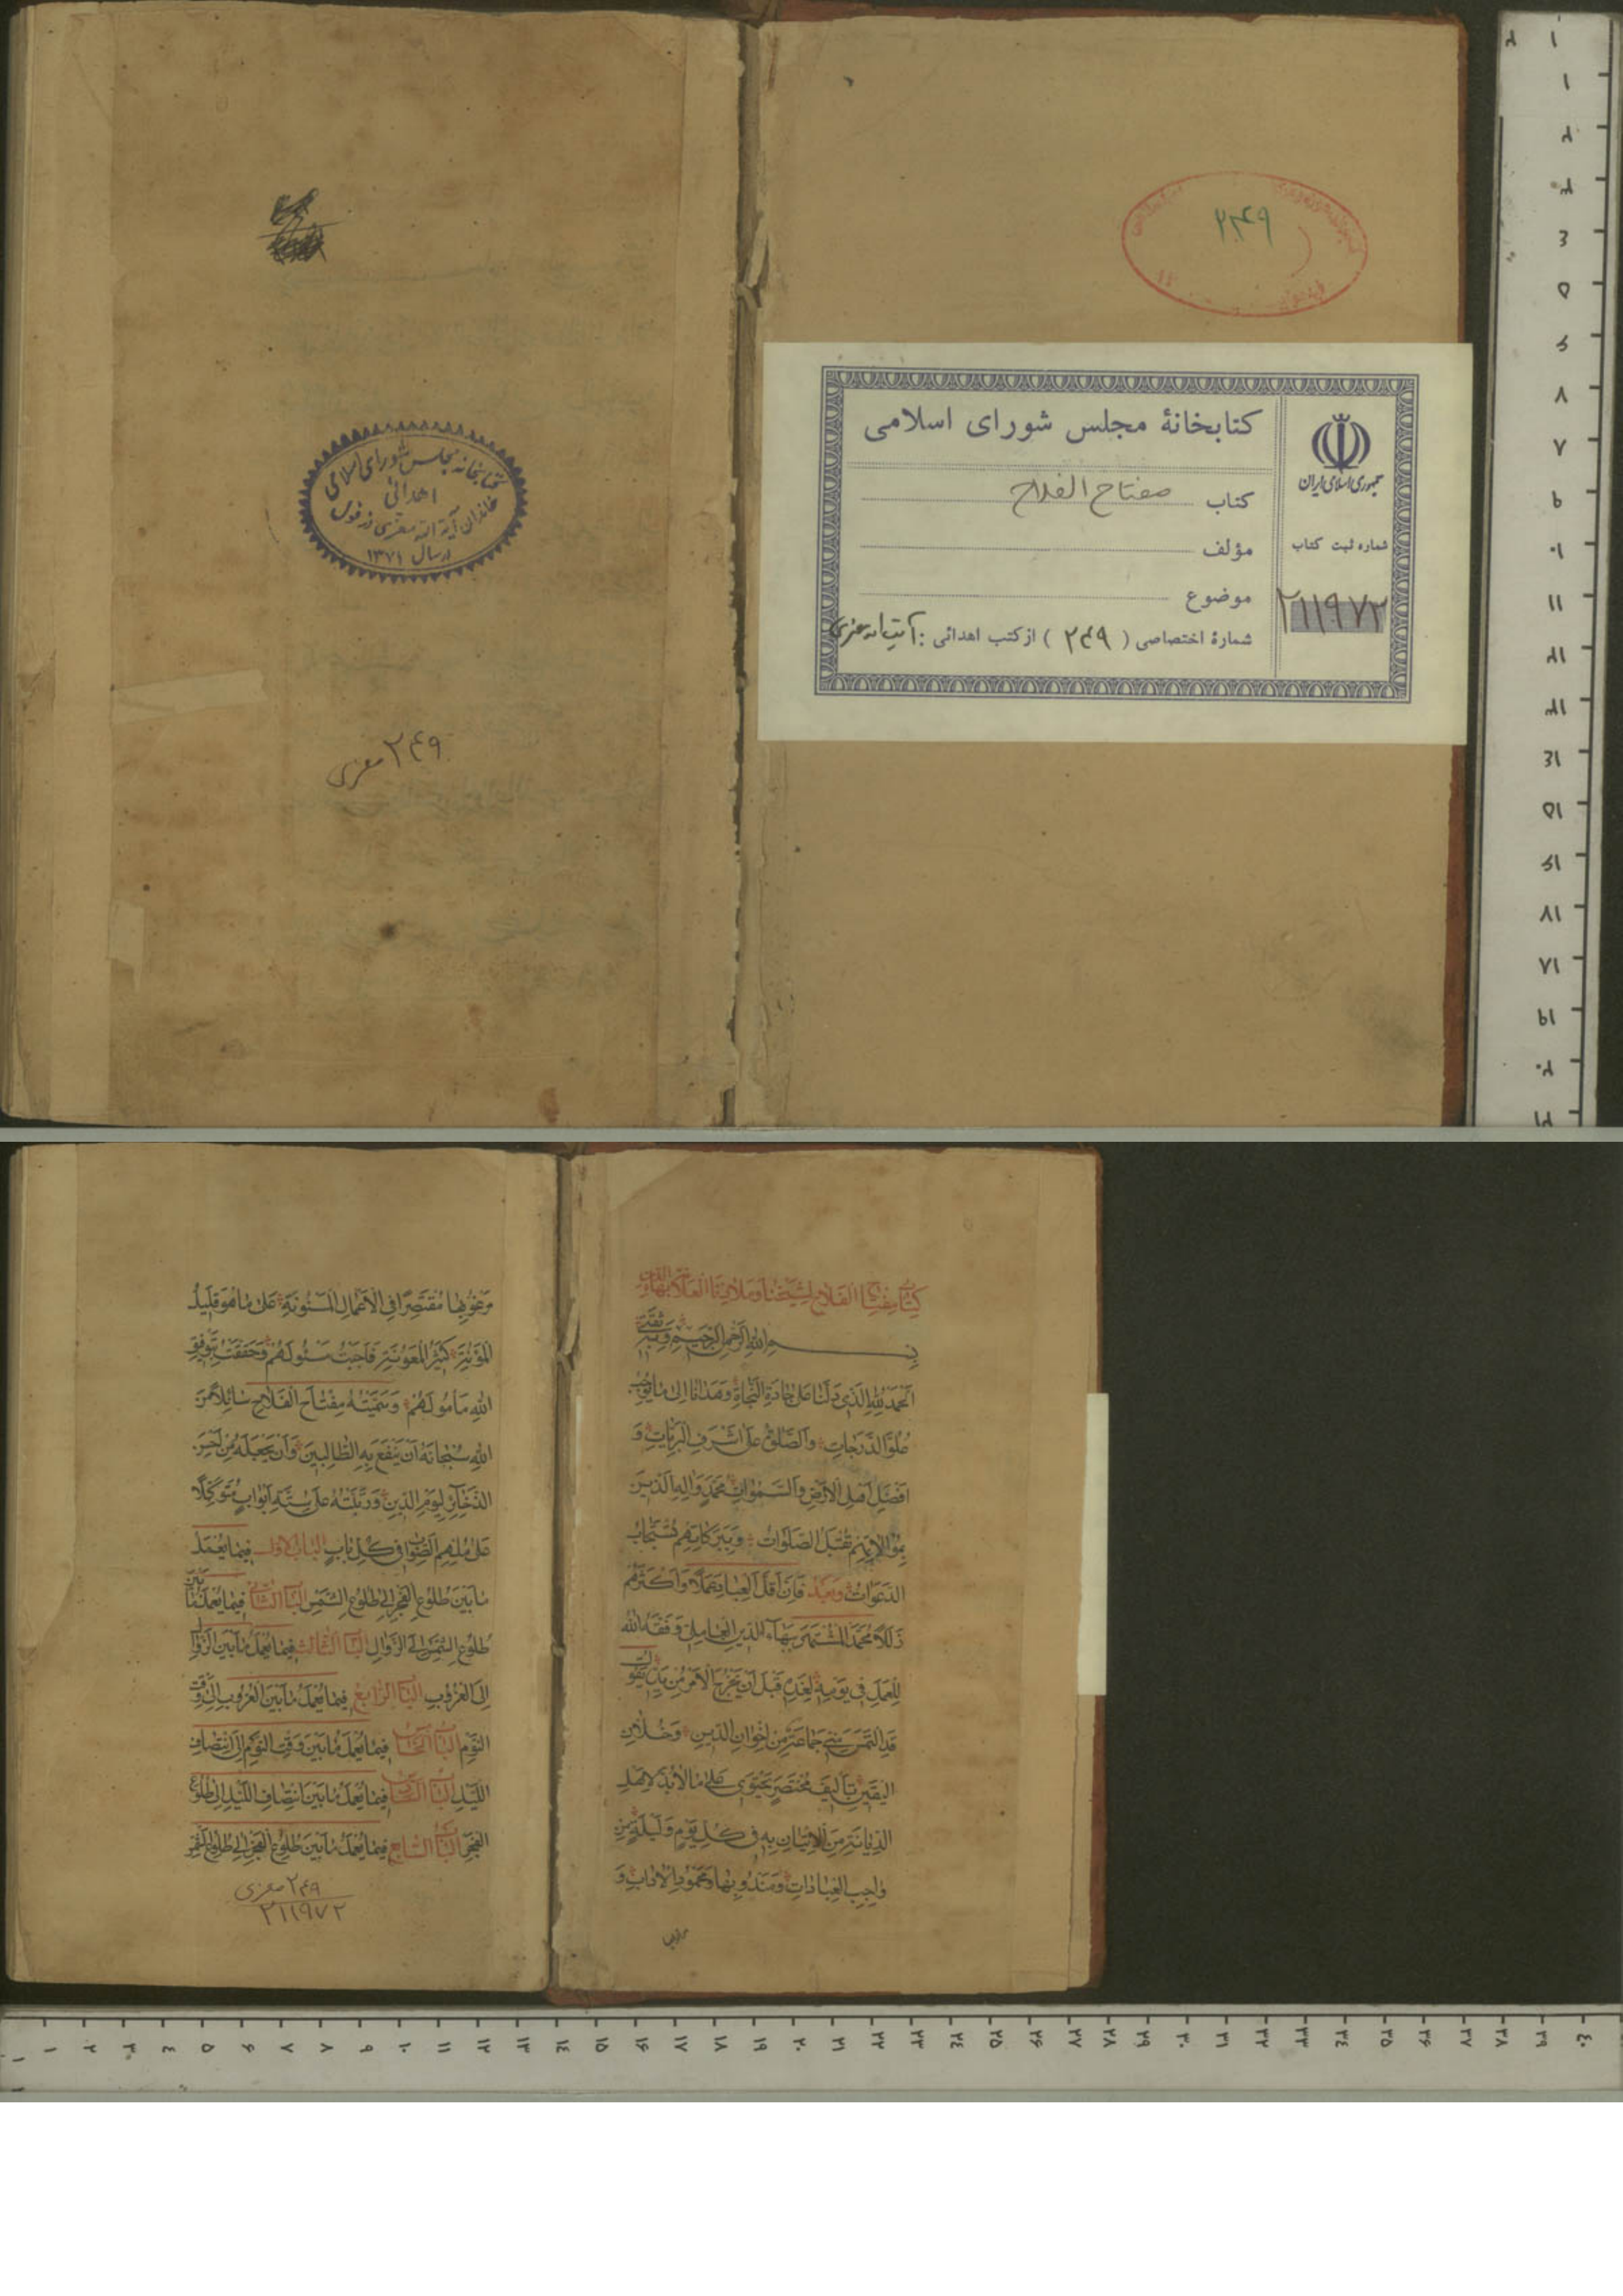 ۲۴۹
کتابخانهٔ مجلس شورای اسلامی
کتاب مفتاح الفلاح
مؤلف
موضوع
شمارهٔ اختصاصی ( ۲۴۹ ) از کتب اهدائی :
جمهوری اسلامی ایران
شماره ثبت کتاب
۲۱۱۹۷۲
کتابخانه مجلس شورای اسلامی
اهدائی
خاندان آیة الله معزی دزفولی
در سال ۱۳۷۱
۲۴۹ معزی
کتاب مفتاح الفلاح لشیخنا ومولانا العلامة بهاء الدین
بسم الله الرحمن الرحیم وبه ثقتی
اَلحَمدُ لِلّٰهِ الَّذی دَلَّنا عَلی جادَةِ النَّجاةِ وَهَدانا اِلی ما یُوجِبُ
عُلُوَّ الدَّرَجاتِ والصَّلوةُ عَلی اَشرَفِ البَرِیّاتِ وَ
اَفضَلِ اَهلِ الاَرضِ وَالسَّمٰواتِ مُحَمَّدٍ وَآلِهِ الَّذینَ
بِمُوالاتِهِم تُقبَلُ الصَّلَواتُ وَبِبَرَکاتِهِم تُستَجابُ
الدَّعَواتُ وَبَعدُ فَاِنَّ اَقَلَّ العِبادِ عَمَلاً وَاَکثَرَهُم
زَلَلاً مُحَمَّدٌ المُشتَهَرُ بِبَهاءِ الدّینِ العامِلِیّ وَفَّقَهُ اللهُ
لِلعَمَلِ فی یَومِهِ لِغَدِهِ قَبلَ اَن یَخرُجَ الاَمرُ مِن یَدِهِ یَقُولُ
قَدِ التَمَسَ مِنّی جَماعَةٌ مِن اِخوانِ الدّینِ وَخُلّانِ
الیَقینِ تَألیفَ مُختَصَرٍ یَحتَوی عَلی ما لابُدَّ لِاَهلِ
الدِّیانَةِ مِنَ الاِتیانِ بِهِ فی کُلِّ یَومٍ وَلَیلَةٍ مِن
واجِبِ العِباداتِ وَمَندُوبِها وَمَحمُودِ الآدابِ وَ
مَرغُوبِها مُقتَصِراً فِی الاَعمالِ المَسنُونَةِ عَلی ما هُوَ قَلیلُ
المَؤُنَةِ کَثیرُ المَعُونَةِ فَاَجَبتُ مَسئُولَهُم وَحَقَّقتُ بِتَوفیقِ
اللهِ مَأمُولَهُم وَسَمَّیتُهُ مِفتاحَ الفَلاحِ سائِلاً مِنَ
اللهِ سُبحانَهُ اَن یَنفَعَ بِهِ الطّالِبینَ وَاَن یَجعَلَهُ مِن اَحسَنِ
الذَّخائِرِ لِیَومِ الدّینِ وَرَتَّبتُهُ عَلی سِتَّةِ اَبوابٍ مُتَوَکِّلاً
عَلی مُلهِمِ الصَّوابِ فی کُلِّ بابٍ الباب الاول فیما یُعمَلُ
ما بَینَ طُلُوعِ الفَجرِ اِلی طُلُوعِ الشَّمسِ الباب الثانی فیما یُعمَلُ ما بین
طُلُوعِ الشَّمسِ اِلَی الزَّوالِ الباب الثالث فیما یُعمَلُ ما بَینَ الزَّوالِ
اِلَی الغُرُوبِ الباب الرابع فیما یُعمَلُ ما بَینَ الغُرُوبِ اِلی وَقتِ
النَّومِ الباب الخامس فیما یُعمَلُ ما بَینَ وَقتِ النَّومِ اِلَی انتِصافِ
اللَّیلِ الباب السادس فیما یُعمَلُ ما بَینَ انتِصافِ اللَّیلِ اِلی طُلُوعِ
الفَجرِ الباب السابع فیما یُعمَلُ ما بَینَ طُلُوعِ الفَجرِ اِلی طُلُوعِ
۲۴۹ معزی
۲۱۱۹۷۲